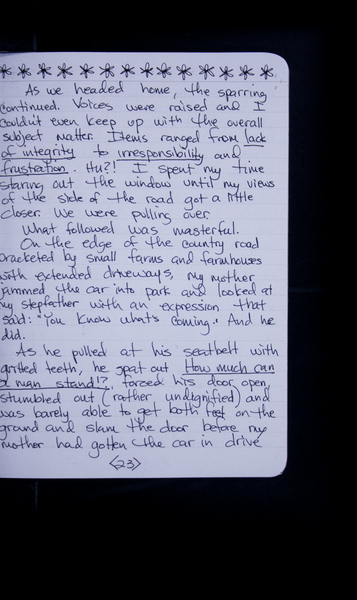 As we headed home, the sparring
continued. Voices were raised and I
couldn't even keep up with the overall
subject matter. Items ranged from lack
of integrity to irresponsibility and
frustration. Hu?! I spent my time
staring out the window until my views
of the side of the road got a little
closer. We were pulling over.
What followed was masterful.
On the edge of the country road
bracketed by small farms and farmhouses
with extended driveways, my mother
jammed the car into park and looked at
my stepfather with an expression that
said: "You know what's coming." And he
did.
As he pulled at his seatbelt with
gritted teeth, he spat out How much can
a man stand!?, forced his door open,
stumbled out (rather undignified) and
was barely able to get both feet on the
ground and slam the door before my
mother had gotten the car in drive
<23>